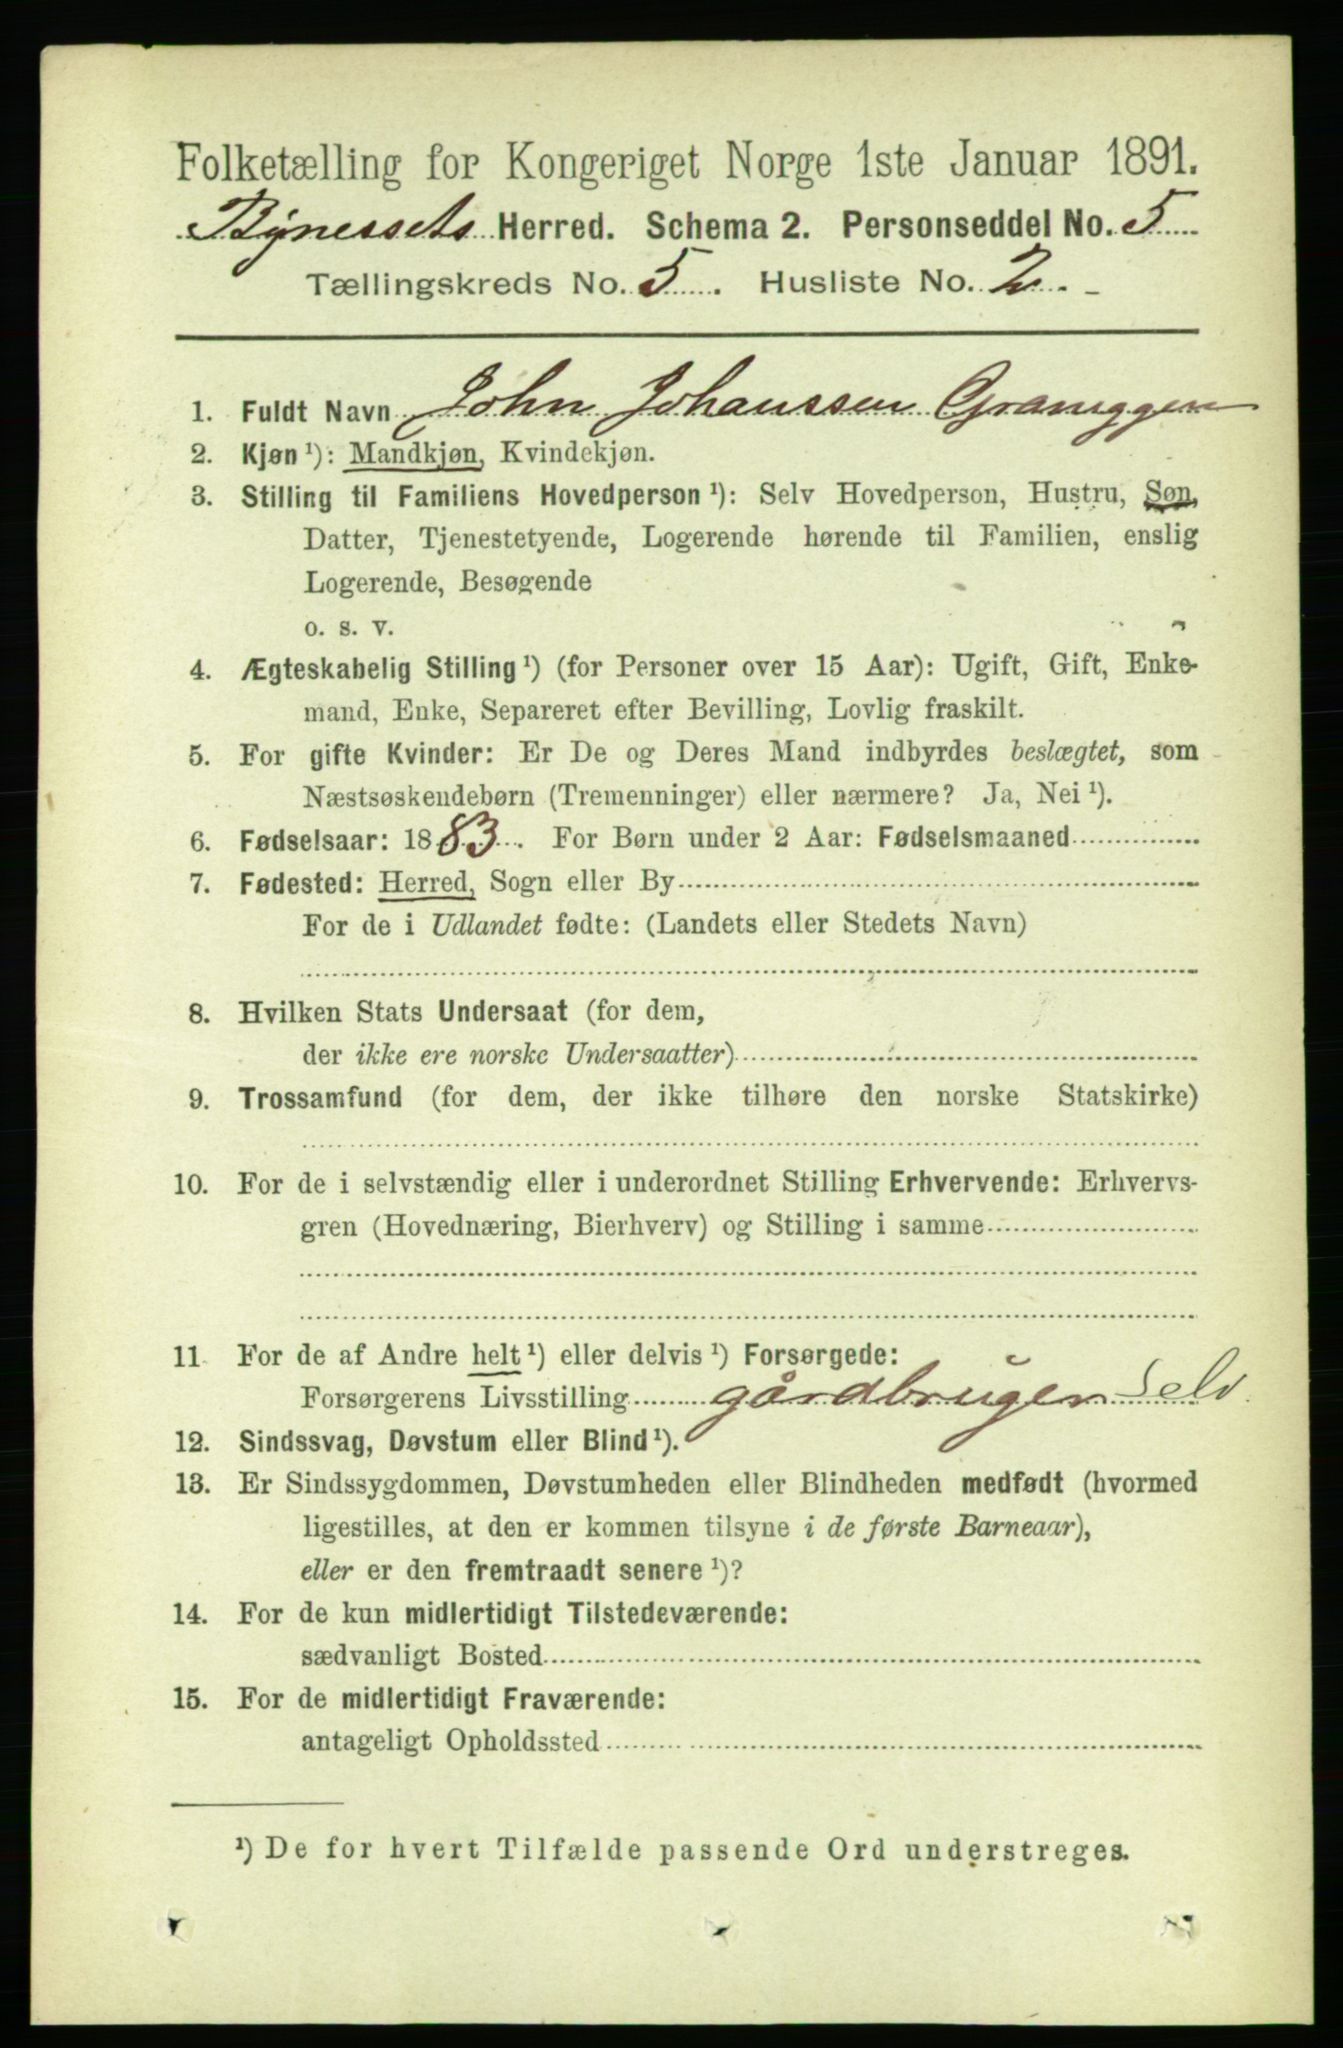 Folketælling for Kongeriget Norge 1ste Januar 1891.
Bynessets Herred. Schema 2. Personseddel No. 5
Tællingskreds No. 5. Husliste No. 2.
1. Fuldt Navn John Johanssen
2. Kjøn ¹): Mandkjøn, Kvindekjøn.
3. Stilling til Familiens Hovedperson ¹): Selv Hovedperson, Hustru, Søn,
Datter, Tjenestetyende, Logerende hørende til Familien, enslig
Logerende, Besøgende
o. s. v.
4. Ægteskabelig Stilling ¹) (for Personer over 15 Aar): Ugift, Gift, Enke-
mand, Enke, Separeret efter Bevilling, Lovlig fraskilt.
5. For gifte Kvinder: Er De og Deres Mand indbyrdes beslægtet, som
Næstsøskendebørn (Tremenninger) eller nærmere? Ja, Nei ¹).
6. Fødselsaar: 1883. For Børn under 2 Aar: Fødselsmaaned
7. Fødested: Herred, Sogn eller By
For de i Udlandet fødte: (Landets eller Stedets Navn)
8. Hvilken Stats Undersaat (for dem,
der ikke ere norske Undersaatter)
9. Trossamfund (for dem, der ikke tilhøre den norske Statskirke)
10. For de i selvstændig eller i underordnet Stilling Erhvervende: Erhvervs-
gren (Hovednæring, Bierhverv) og Stilling i samme
11 For de af Andre helt ¹) eller delvis ¹) Forsørgede:
Forsørgerens Livsstilling gårdbruger Selv.
12. Sindssvag, Døvstum eller Blind ¹).
13. Er Sindssygdommen, Døvstumheden eller Blindheden medfødt (hvormed
ligestilles, at den er kommen tilsyne i de første Barneaar),
eller er den fremtraadt senere ¹)?
14. For de kun midlertidigt Tilstedeværende:
sædvanligt Bosted
15. For de midlertidigt Fraværende:
antageligt Opholdssted
¹) De for hvert Tilfælde passende Ord understreges.